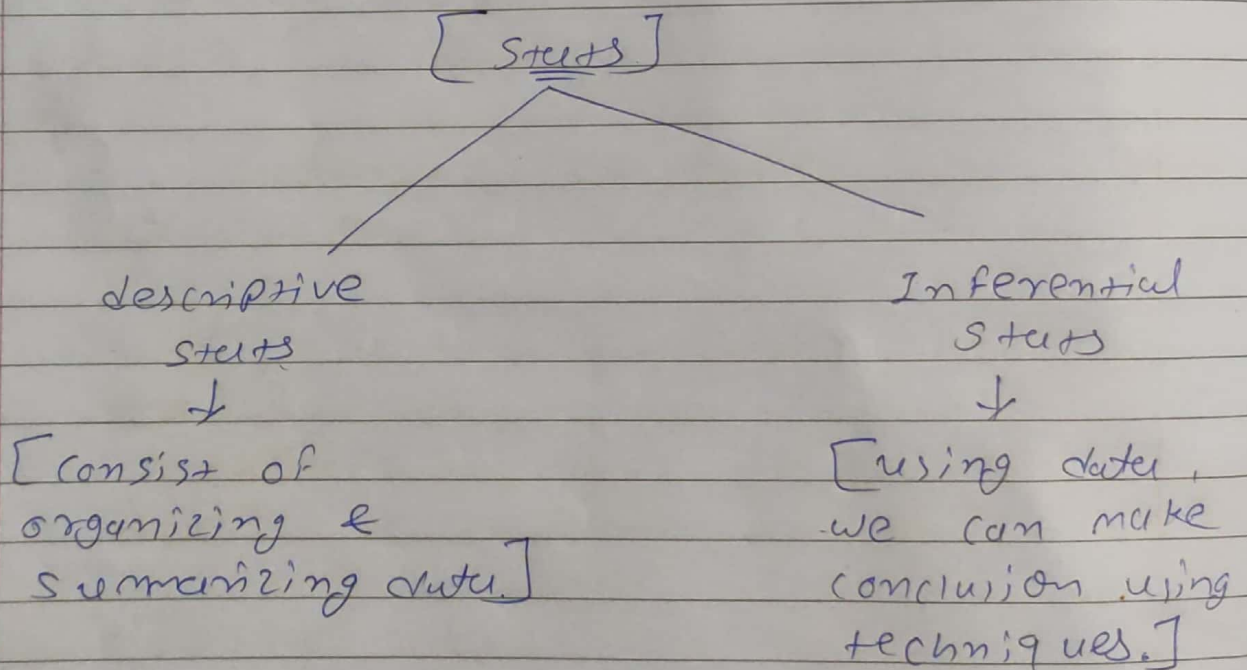 [Stats]
descriptive
stats
[consist of
organizing &
summarizing data.]
Inferential
Stats
[using data,
we can make
conclusion using
techniques.]